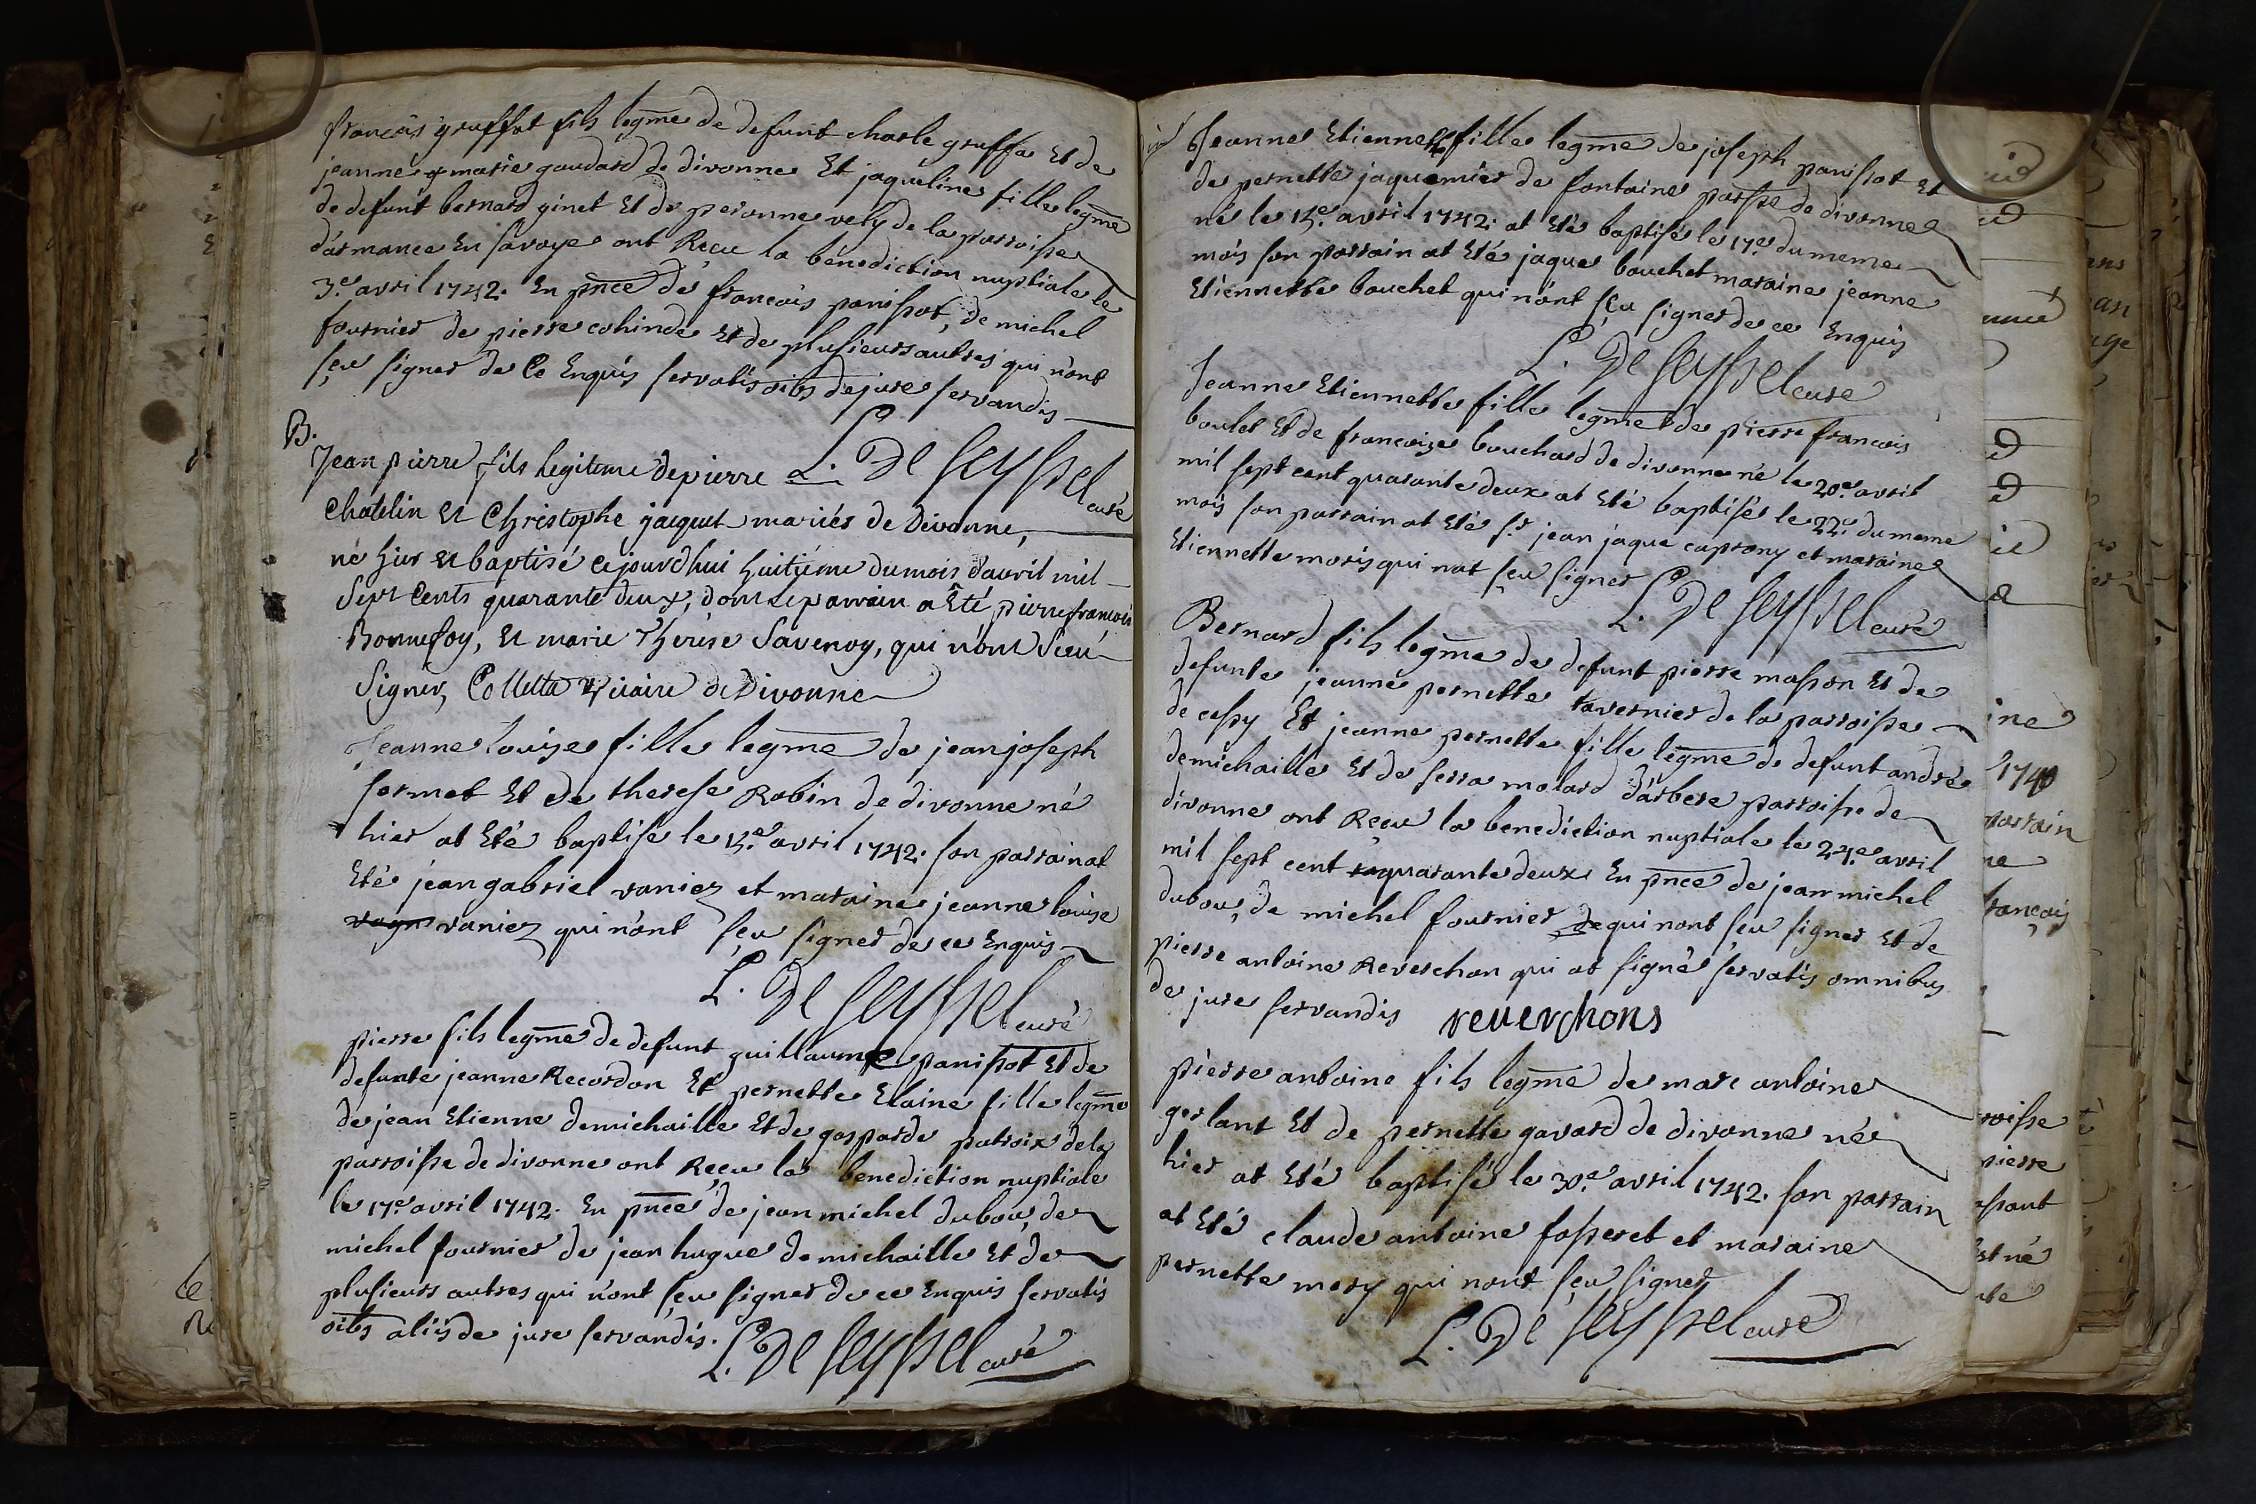 françois gruffat fils legme de defunt charle gruffa Et de
jeanne marie gaudard de divonne Et jaqueline fille legme
de defunt bernard ginet Et de peronne vely de la parroisse
d'armance En savoye ont Reçeu la bénédiction nuptiale le
3.e avril 1742. En pnce de françois panissot, de michel
fournier de pierre cohinde Et de plusieurs autres qui n'ont
sçeu signer de Ce Enquis servatis oibs de jure servandis
L. De seyssel curé
B.
Jean pierre fils legitime de pierre
Chatelin Et Christophe jacquet mariés de Divonne,
né hier Et baptisé cejourdhui huitiéme du mois d'avril mil
Sept Cents quarante deux, dont le parrain a Eté pierre françois
Bonnefoy, Et marie Therese Savenoy, qui n'ont Sceu
Signer, Colletta Vicaire de Divonne
Jeanne louise fille legme de jean joseph
fermet Et de therese Robin de divonne né
hier at Eté baptise le 15.e avril 1742. son parrain at
Eté jean gabriel vaniez et maraine jeanne louise
vagn vaniez qui n'ont sçeu signer de ce Enquis
L. De seyssel curé
pierre fils legme de defunt guillaume panissot Et de
defunte jeanne Recordon Et pernette Elaine fille legme
de jean Etienne demichaille Et de gasparde patroix de la
parroisse de divonne ont Reçeu la benediction nuptiale
le 17.e avril 1742. En pnce de jean michel dubou, de
michel fournier de jean hugue demichaille Et de
plusieurs autres qui n'ont sçeu signer de ce Enquis servatis
oibs aliis de jure servandis. L. De seyssel curé
Jeanne Etiennette fille legme de joseph panissot Et
de pernette jaquemier de fontaine parsse de divonne
né le 15.e avril 1742. at Eté baptisé le 17.e du meme
mois son parrain at Eté jaque bouchet maraine jeanne
Etiennette bouchet qui n'ont sçeu signer de ce Enquis
L. De seyssel curé
Jeanne Etiennette fille legme de pierre françois
boulet Et de françoise bouchard de divonne né le 20.e avril
mil sept cent quarante deux at Eté baptisé le 22.e du meme
mois son parrain at Eté sr. jean jaque caprony et maraine
Etiennette moris qui n'at sçeu signer L. De seyssel curé
Bernard fils legme de defunt pierre masson Et de
defunte jeanne pernette tavernier de la parroisse
de cessy Et jeanne pernette fille legme de defunt andré
demichaille Et de serra molard d'arbere parroisse de
divonne ont Reçeu la benediction nuptiale le 24.e avril
mil sept cent quarante deux En pnce de jean michel
dubou, de michel fournier de qui n'ont sçeu signer Et de
pierre antoine Reverchon qui at signé servatis omnibus
de jure servandis reuerchons
pierre antoine fils legme de marc antoine
gerlant Et de pernette gavard de divonne né
hier at Eté baptisé le 30.e avril 1742. son parrain
at Eté claude antoine fosseret et maraine
pernette mery qui n'ont sçeu signer
L. De seyssel curé